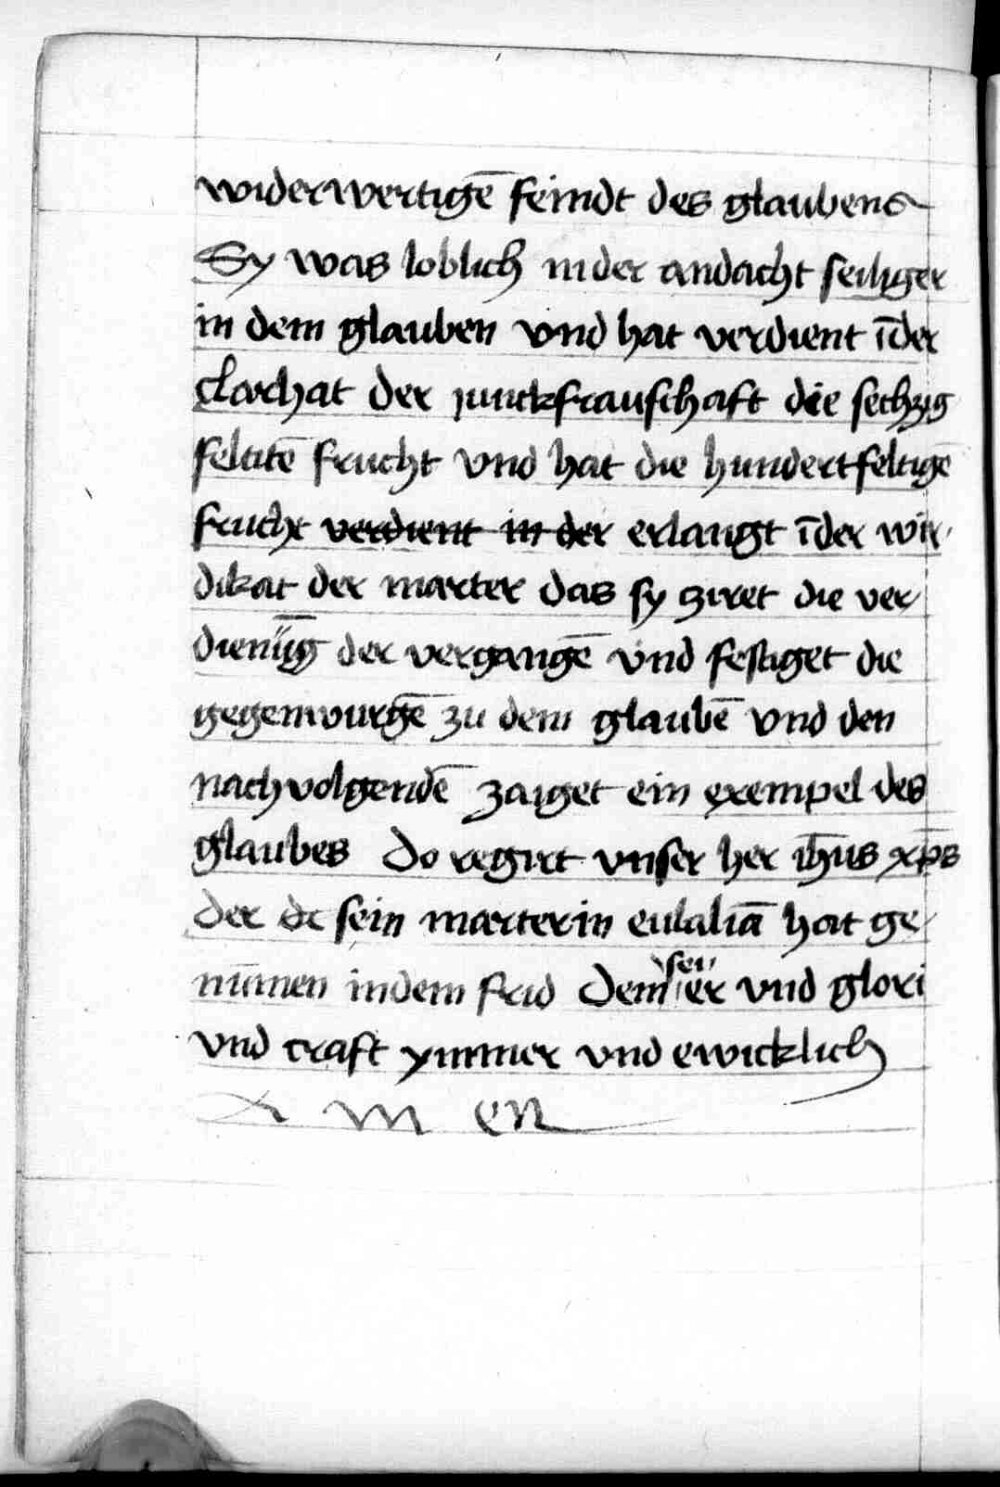 widerwertigē feindt des glaubens
Sy was loblich in der andacht seiliger
in dem glauben vnd hat verdient ī der
clarhait der junckfrauschaft die sechzig
feltitē frucht vnd hat die hundertfeltigē
frucht verdient in der erlangt ī der wir
dikat der marter das sy ziret die ver
dienūg der vergangē vnd festiget die
gegenwurgē zu dem glaubē vnd den
nachvolgendē zaiget ein exempel des
glaubes Do regirt vnser her ih̄us xp̄s
der de sein marterin eulaliā hat ge
nūmen in dem frid Dem sei er vnd glori
vnd craft ymmer vnd ewicklich
A m en